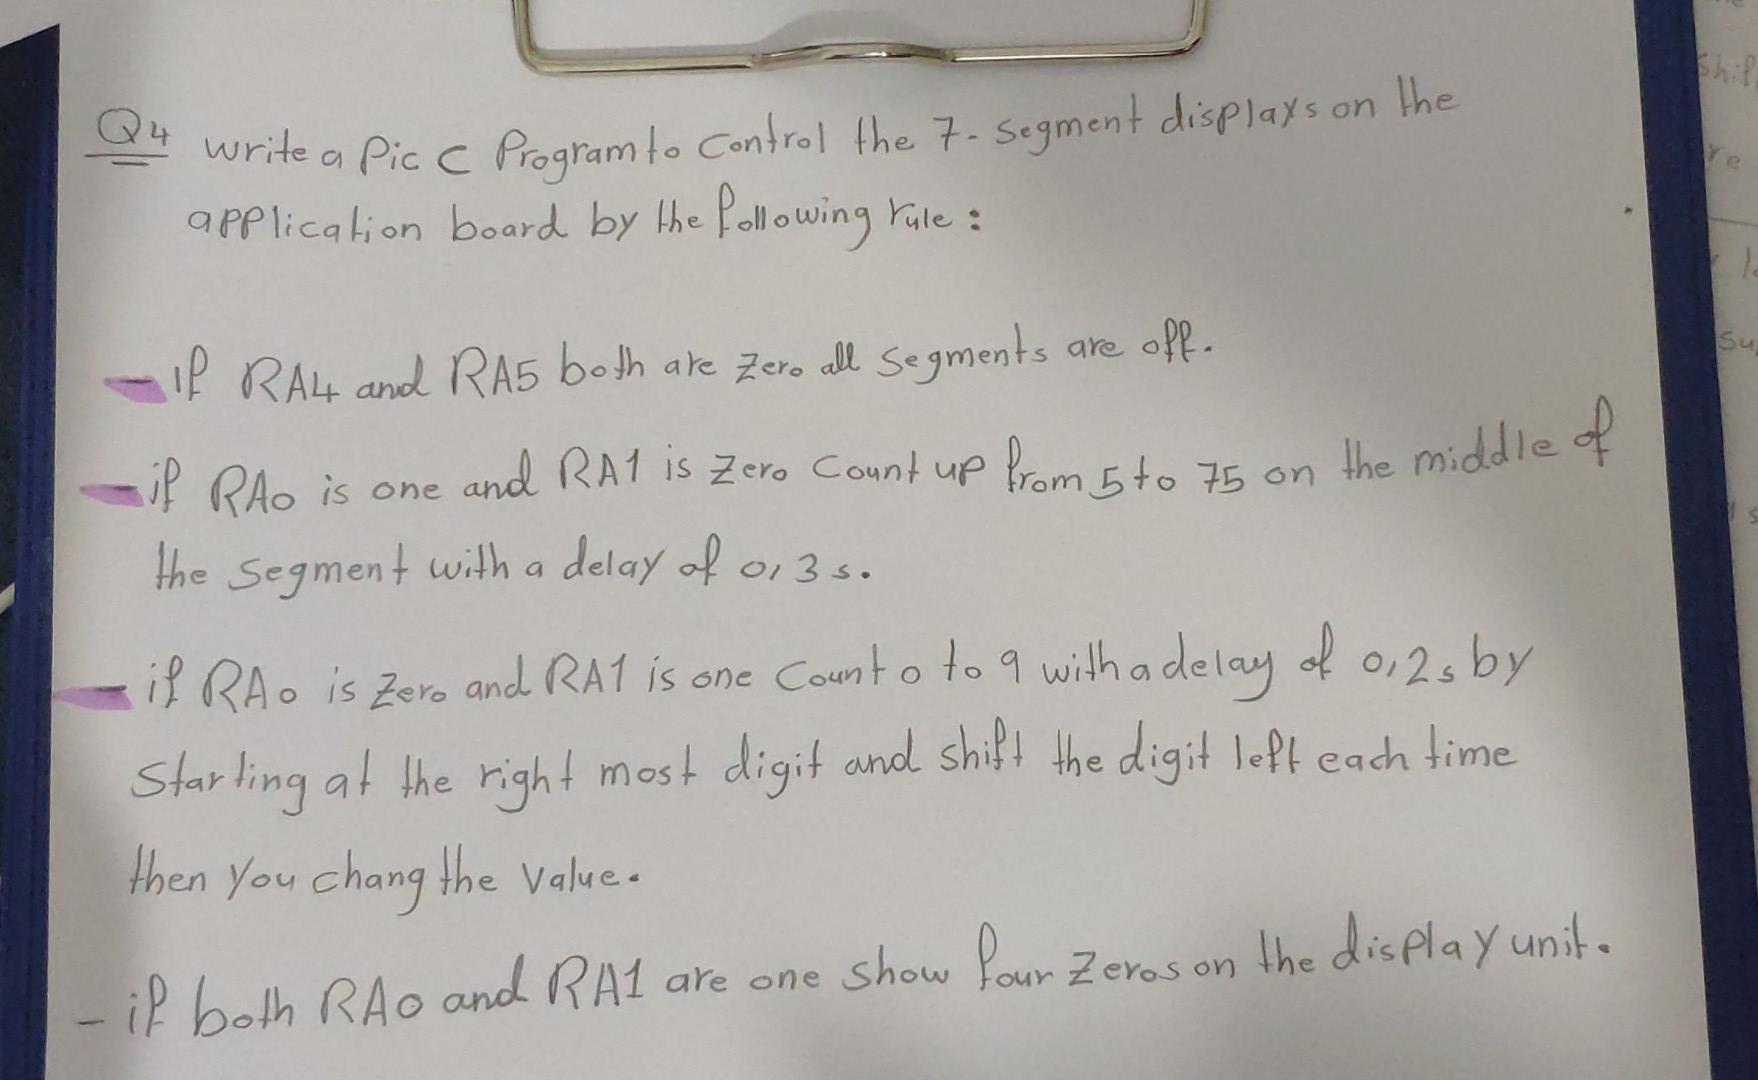 Q4 write a Pic C Program to Control the 7-segment displays on the
application board by the following rule:
- if RA4 and RA5 both are zero all segments are off.
- if RA0 is one and RA1 is zero Count up from 5 to 75 on the middle of
the segment with a delay of 0,3 s.
- if RA0 is zero and RA1 is one Count 0 to 9 with a delay of 0,2s by
Starting at the right most digit and shift the digit left each time
then you chang the value.
- if both RA0 and RA1 are one show four zeros on the display unit.
Ship
re
su